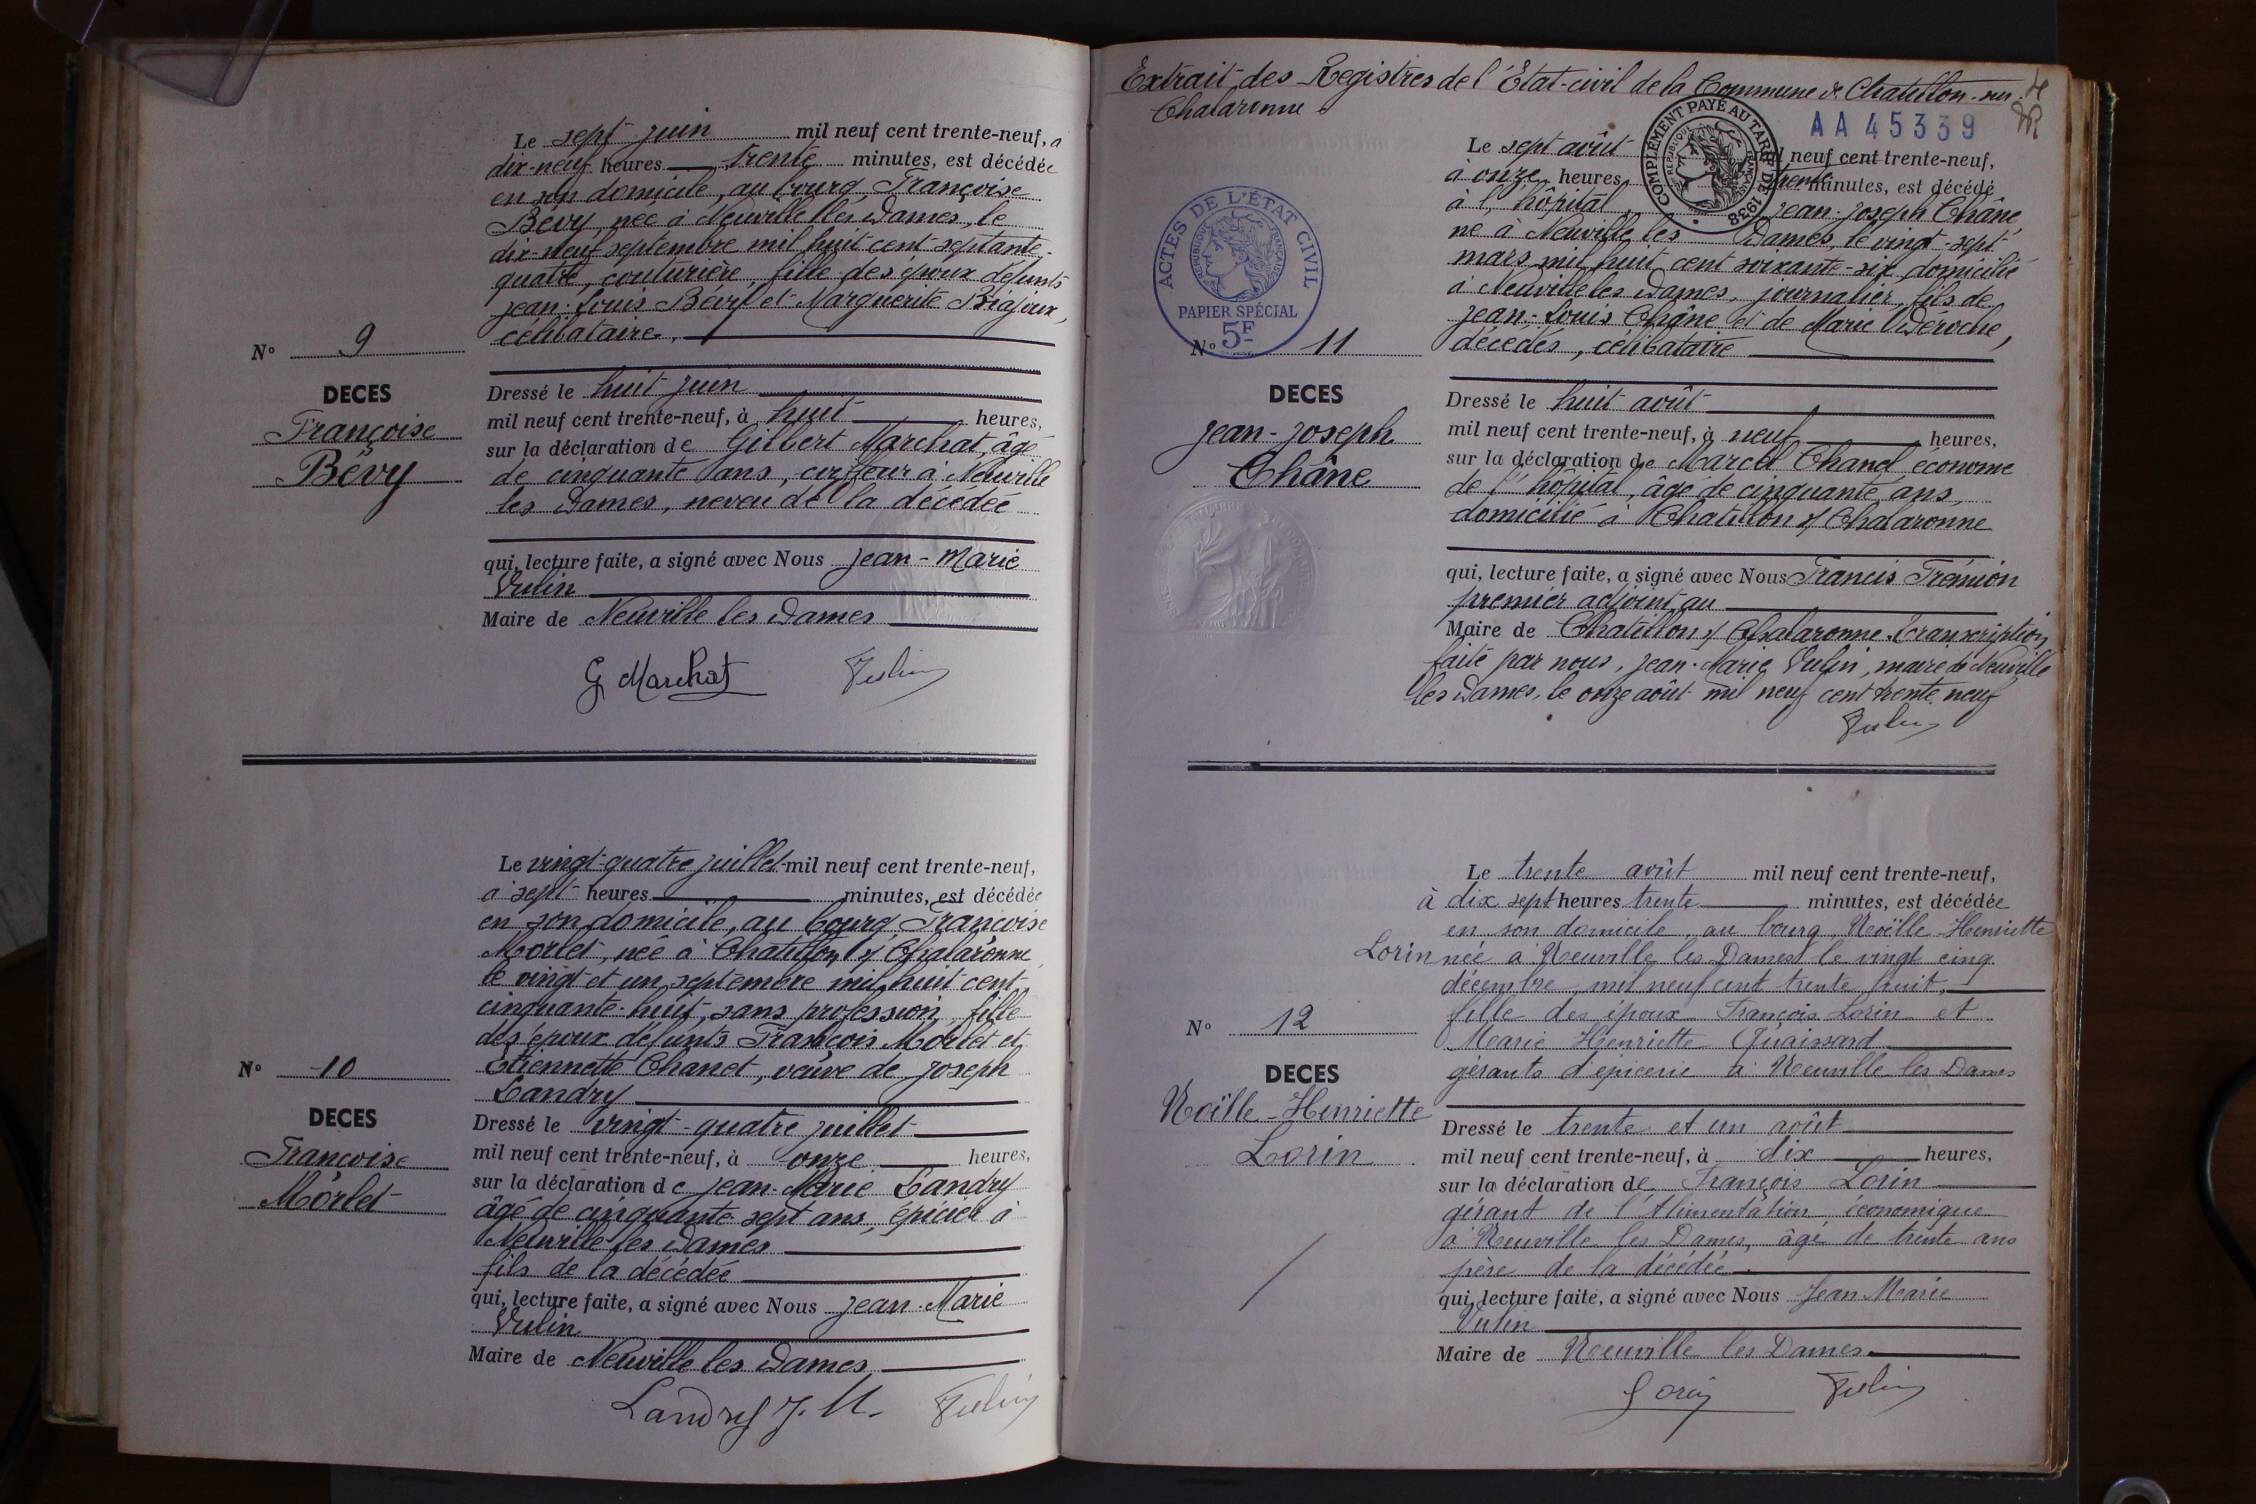 Le sept juin mil neuf cent trente-neuf, à
dix-neuf heures trente minutes, est décédée
en son domicile, au bourg Françoise
Bévy, née à Neuville les Dames, le
dix-neuf septembre mil huit cent septante-
quatre, couturière, fille des époux défunts
Jean-Louis Bévy et Marguerite
célibataire,
N° 9
DECES
Françoise
Bévy
Dressé le huit juin
mil neuf cent trente-neuf, à huit heures,
sur la déclaration de Gilbert Marchat, âgé
de cinquante ans, coiffeur à Neuville
les Dames, neveu de la décédée
qui, lecture faite, a signé avec Nous Jean-Marie
Vulin
Maire de Neuville les Dames
G Marchat Vulin
Le vingt-quatre juillet mil neuf cent trente-neuf,
à sept heures minutes, est décédée
en son domicile, au bourg, Françoise
Morlet, née à Chatillon s/ Chalaronne
le vingt et un septembre mil huit cent
cinquante-huit, sans profession, fille
des époux défunts François Morlet et
Etiennette Chanet, veuve de Joseph
Landry
N° 10
DECES
Françoise
Morlet
Dressé le vingt-quatre juillet
mil neuf cent trente-neuf, à onze heures,
sur la déclaration de Jean-Marie Landry
âgé de cinquante sept ans, épicier à
Neuville les Dames
fils de la décédée
qui, lecture faite, a signé avec Nous Jean-Marie
Vulin
Maire de Neuville les Dames
Landry J. M. Vulin
Extrait des Registres de l'Etat-civil de la Commune de Chatillon-sur-
Chalaronne
AA 45339
COMPLÉMENT PAYÉ AU TARIF DE 1938
RÉPUBLIQUE FRANÇAISE
ACTES DE L'ÉTAT CIVIL
RÉPUBLIQUE FRANÇAISE
PAPIER SPÉCIAL
5F
Le sept août mil neuf cent trente-neuf,
à onze heures trente minutes, est décédé
à l'hôpital, Jean-Joseph Châne
né à Neuville les Dames, le vingt-sept
mars mil huit cent soixante-six, domicilié
à Neuville les Dames, journalier, fils de
Jean-Louis Châne et de Marie Déroche,
décédés, célibataire
N° 11
DECES
Jean-Joseph
Châne
Dressé le huit août
mil neuf cent trente-neuf, à neuf heures,
sur la déclaration de Marcel Chanel économe
de l'hôpital, âgé de cinquante ans,
domicilié à Chatillon s/ Chalaronne
qui, lecture faite, a signé avec Nous Francis Trémion
premier adjoint au
Maire de Chatillon s/ Chalaronne. Transcription
faite par nous, Jean-Marie Vulin, maire de Neuville
les Dames, le onze août mil neuf cent trente neuf
Vulin
Le trente août mil neuf cent trente-neuf,
à dix sept heures trente minutes, est décédée
en son domicile, au bourg, Noëlle-Henriette
Lorin née à Neuville les Dames le vingt cinq
décembre mil neuf cent trente huit,
fille des époux François Lorin et
Marie Henriette Quaissard
gérants d'épicerie à Neuville les Dames
N° 12
DECES
Noëlle-Henriette
Lorin
Dressé le trente et un août
mil neuf cent trente-neuf, à dix heures,
sur la déclaration de François Lorin
gérant de l'Alimentation économique
à Neuville les Dames, âgé de trente ans
père de la décédée
qui, lecture faite, a signé avec Nous Jean Marie
Vulin
Maire de Neuville les Dames
Lorin Vulin